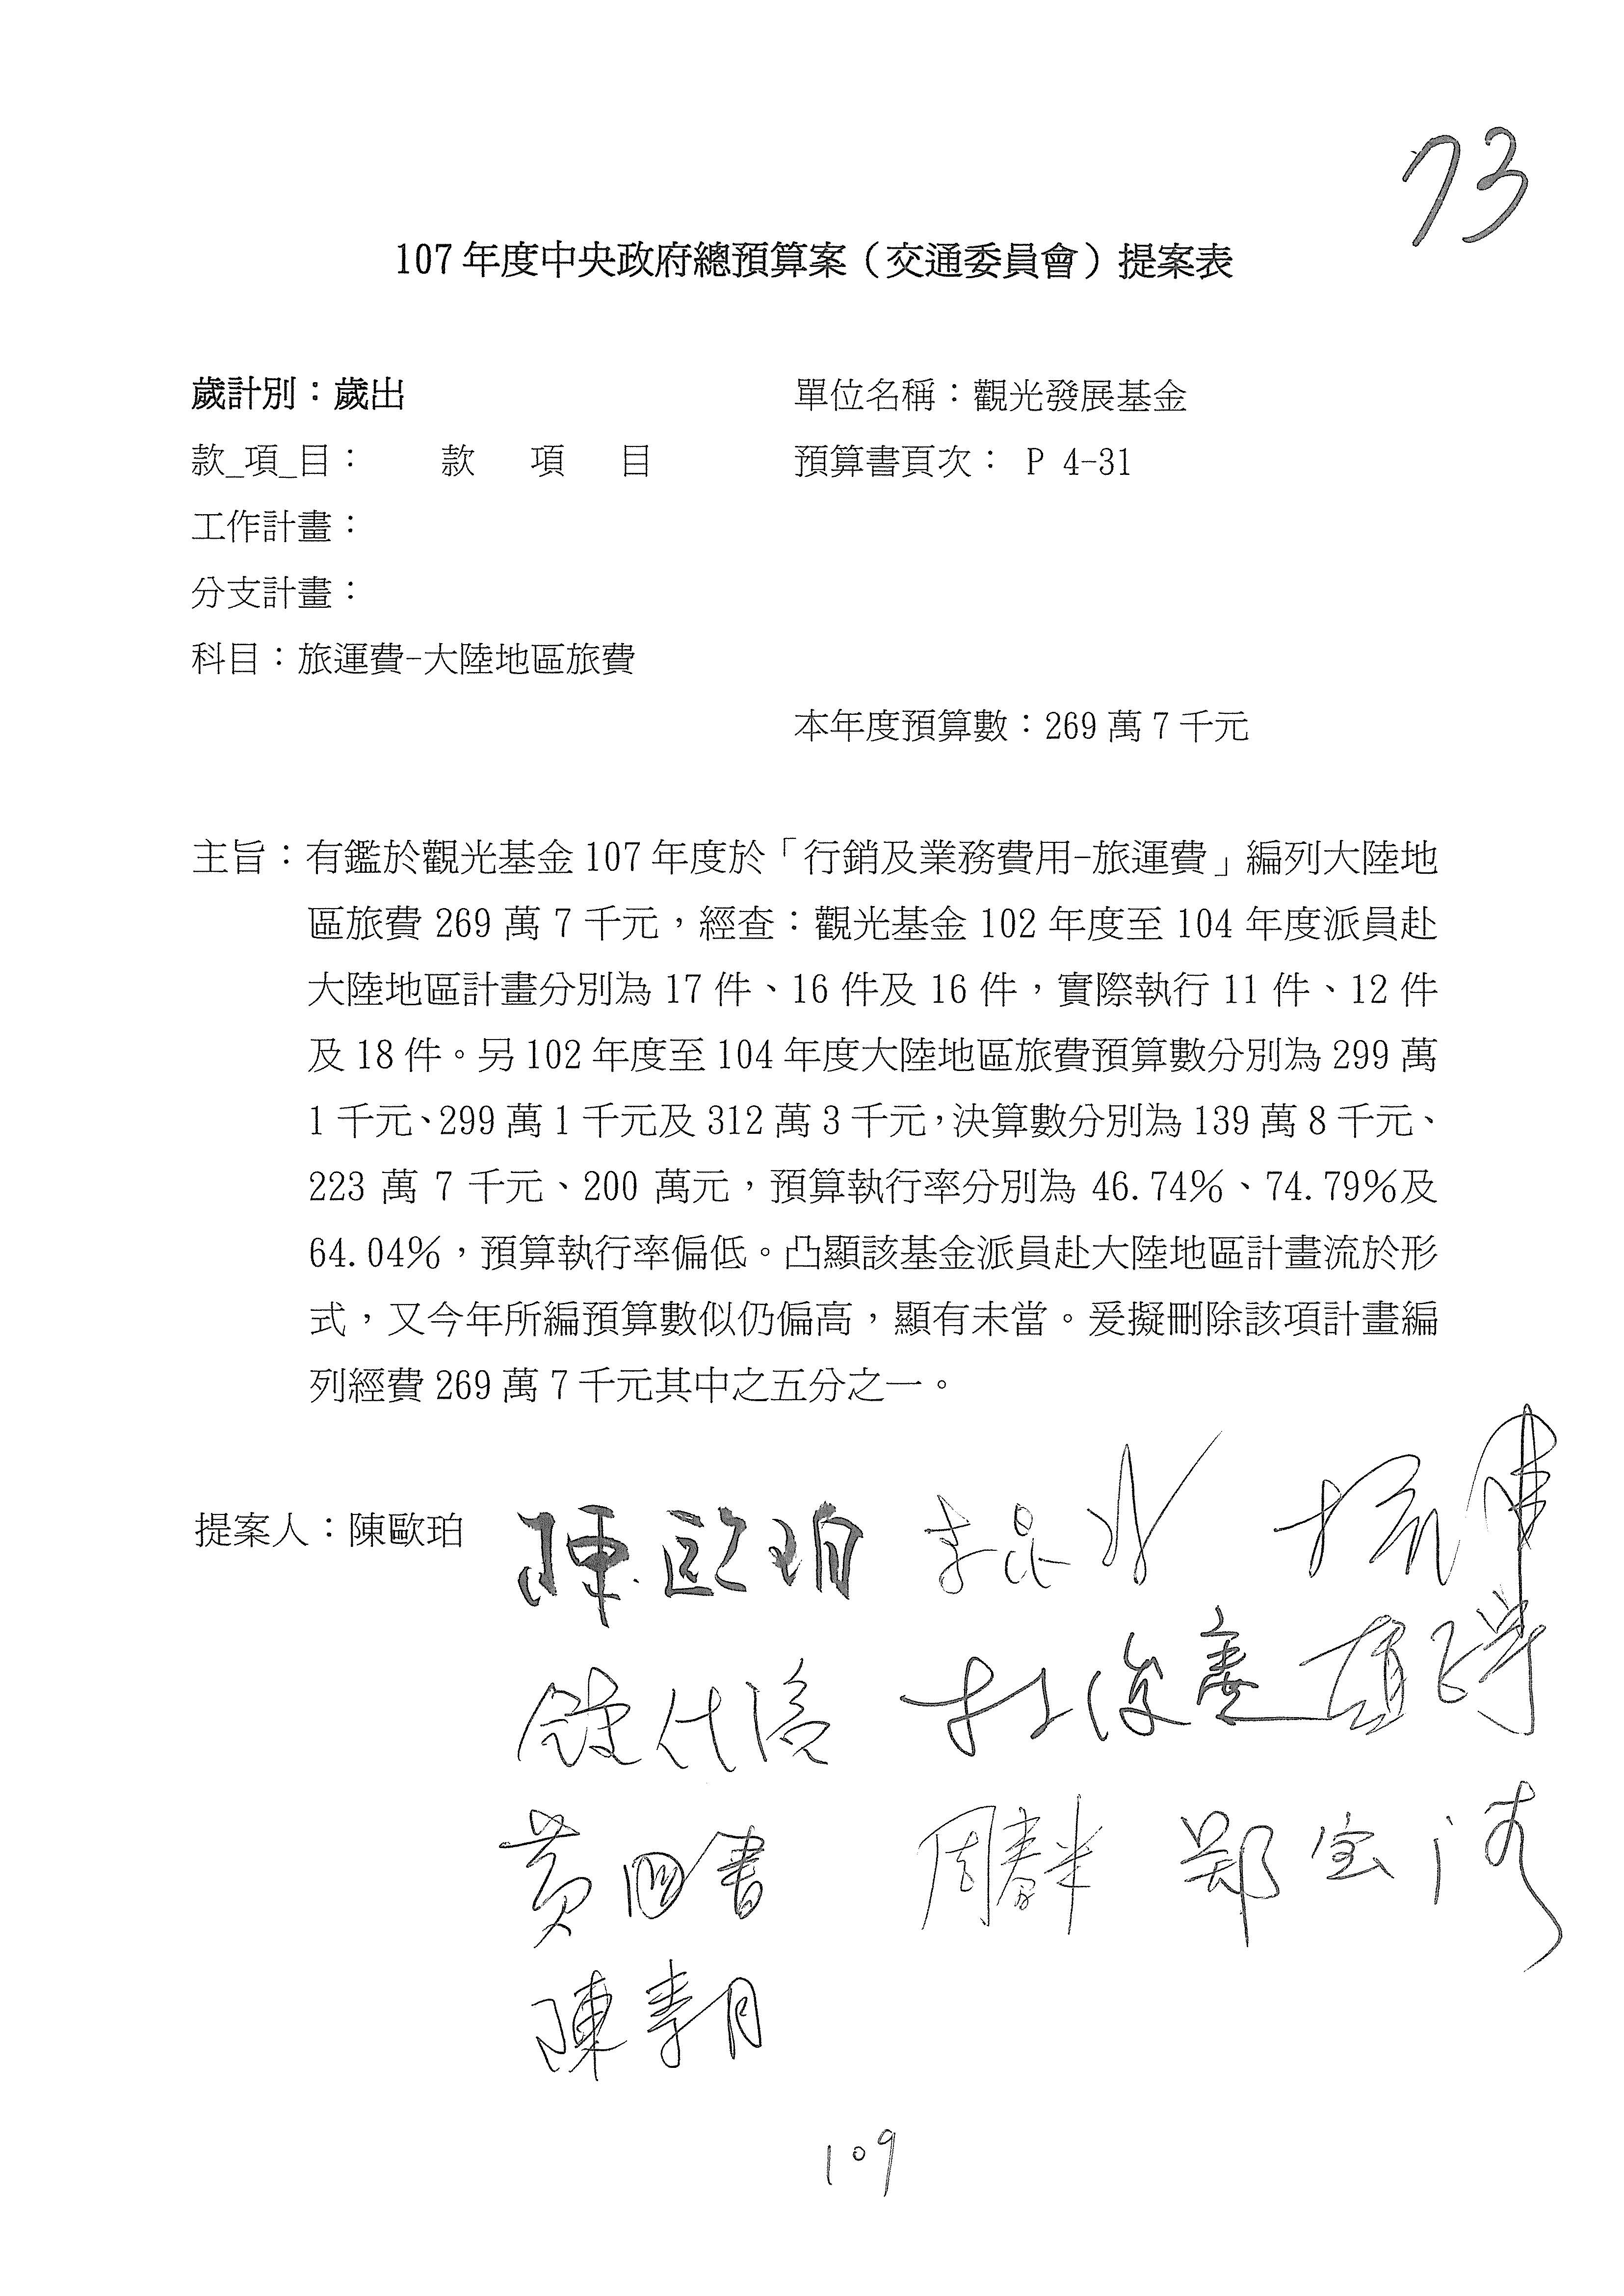 73
107年度中央政府總預算案（交通委員會）提案表
歲計別：歲出　單位名稱：觀光發展基金
款_項_目：　款　項　目　預算書頁次： P 4-31
工作計畫：
分支計畫：
科目：旅運費-大陸地區旅費
本年度預算數：269萬7千元
主旨：有鑑於觀光基金107年度於「行銷及業務費用-旅運費」編列大陸地
區旅費269萬7千元，經查：觀光基金102年度至104年度派員赴
大陸地區計畫分別為17件、16件及16件，實際執行11件、12件
及18件。另102年度至104年度大陸地區旅費預算數分別為299萬
1千元、299萬1千元及312萬3千元，決算數分別為139萬8千元、
223萬7千元、200萬元，預算執行率分別為46.74%、74.79%及
64.04%，預算執行率偏低。凸顯該基金派員赴大陸地區計畫流於形
式，又今年所編預算數似仍偏高，顯有未當。爰擬刪除該項計畫編
列經費269萬7千元其中之五分之一。
提案人：陳歐珀　陳歐珀　李昆
黃國書　鄭宝清
陳
109